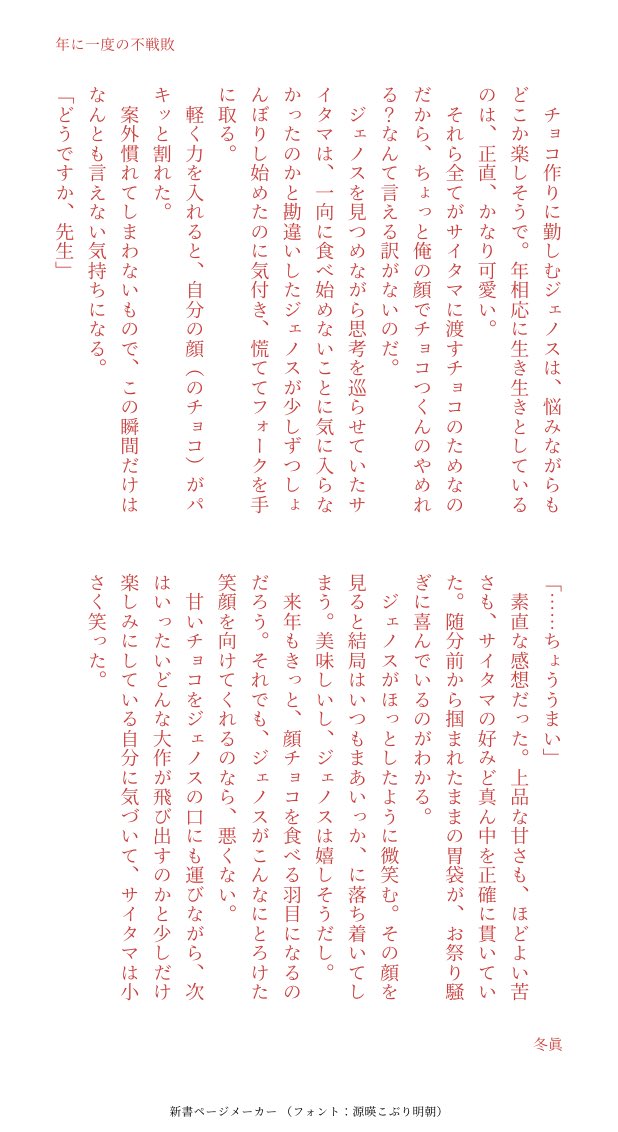 年に一度の不戦敗
　チョコ作りに勤しむジェノスは、悩みながらも
どこか楽しそうで。年相応に生き生きとしている
のは、正直、かなり可愛い。
　それら全てがサイタマに渡すチョコのためなの
だから、ちょっと俺の顔でチョコつくんのやめれ
る？なんて言える訳がないのだ。
　ジェノスを見つめながら思考を巡らせていたサ
イタマは、一向に食べ始めないことに気に入らな
かったのかと勘違いしたジェノスが少しずつしょ
んぼりし始めたのに気付き、慌ててフォークを手
に取る。
　軽く力を入れると、自分の顔（のチョコ）がパ
キッと割れた。
　案外慣れてしまわないもので、この瞬間だけは
なんとも言えない気持ちになる。
「どうですか、先生」
「……ちょううまい」
　素直な感想だった。上品な甘さも、ほどよい苦
さも、サイタマの好みど真ん中を正確に貫いてい
た。随分前から掴まれたままの胃袋が、お祭り騒
ぎに喜んでいるのがわかる。
　ジェノスがほっとしたように微笑む。その顔を
見ると結局はいつもまあいっか、に落ち着いてし
まう。美味しいし、ジェノスは嬉しそうだし。
　来年もきっと、顔チョコを食べる羽目になるの
だろう。それでも、ジェノスがこんなにとろけた
笑顔を向けてくれるのなら、悪くない。
　甘いチョコをジェノスの口にも運びながら、次
はいったいどんな大作が飛び出すのかと少しだけ
楽しみにしている自分に気づいて、サイタマは小
さく笑った。
冬眞
新書ページメーカー（フォント：源暎こぶり明朝）